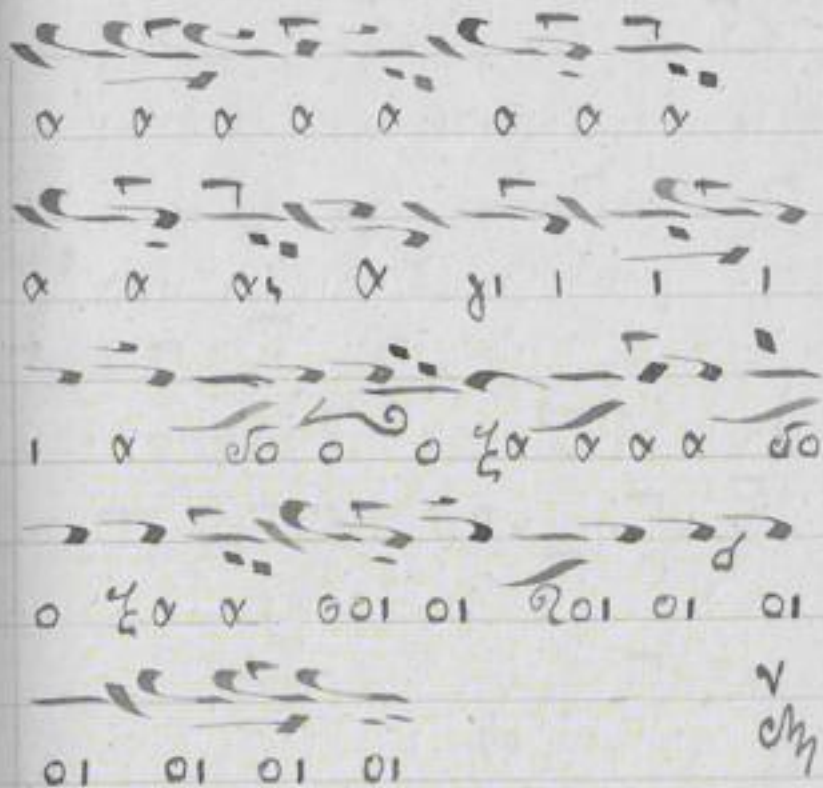 α α α α α α α α
α α ας α γι ι ι ι
ι α δο ο ο ξα α α α δο
ο ξα α σοι οι σοι οι οι
οι οι οι οι